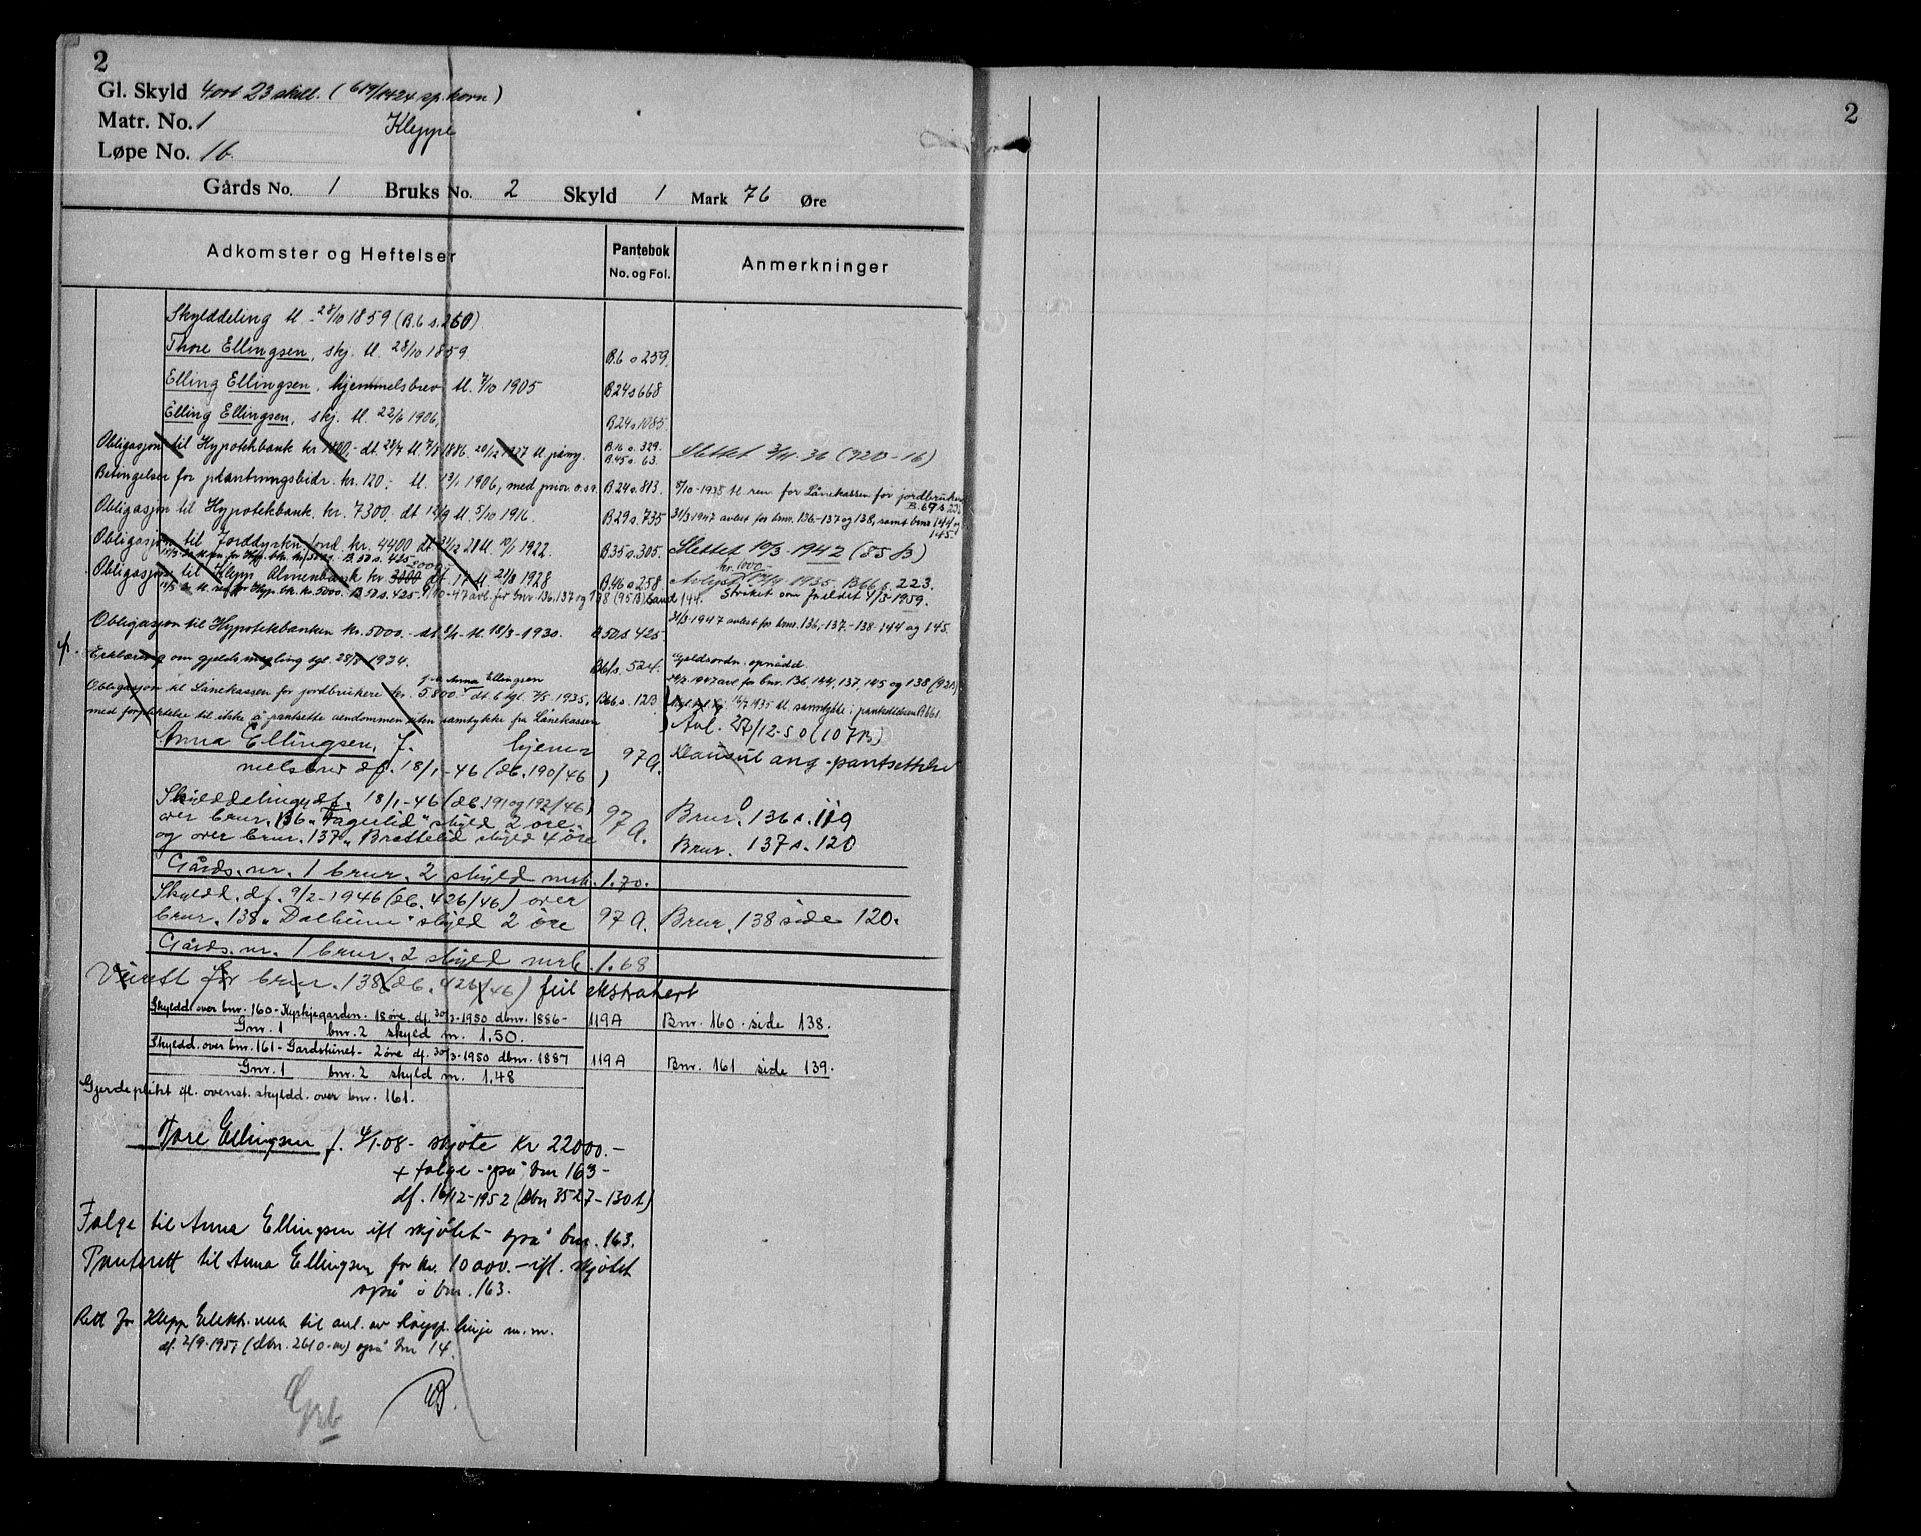 2
Gl. Skyld 4 ort 23 skill. (619/1424 sp. korn)
Matr. No. 1 Kleppe
Løpe No. 1b
Gårds No. 1 Bruks No. 2 Skyld 1 Mark 76 Øre
Adkomster og Heftelser Pantebok No. og Fol. Anmerkninger
Skylddeling tl. 28/10 1859 (B.6 s. 260)
Thore Ellingsen, skj. tl. 28/10 1859 B.6 s 259.
Elling Ellingsen, hjemmelsbrev tl. 7/10 1905 B24s 668
Elling Ellingsen, skj. tl. 22/6 1906, B24s 1085.
Obligasjon til Hypotekbank kr. dt. 28/7 tl. 7/8 1886. 20/12 1927 tl påny. B.16 s. 329. B45 s. 63. Slettet 3/11.36 (920-16)
Betingelser for plantningsbidr. kr. 120.- tl. 13/1 1906, med prior. o.s.v. B 24 s. 813. 8/10-1935 tl ren for Lånekassen for jordbrukere B. 67 s.
Obligasjon til Hypotekbank. kr. 7300, dt 12/9 tl. 5/10 1916. B29 s. 735 31/3 1947 avlest for bnr. 136-137 og 138, samt bnr 144 og 145.
Obligasjon til Jorddyrkn.fond. kr. 4400 dt 21/12 tl. 10/1 1922. B35 s. 305. Slettet 10/3-1942 (85 B)
kr. 5000. B 50 s. 425 2000 kr. 1000-
Obligasjon til Klepp Almenbank kr 3000 dt. 17 tl 21/3 1928 B46 s 258 Avlyst 1935. B66 s. 223.
Hyp. bk. kr. 5000. B 50 s. 425. 9/10-47 avl. for bnr. 136, 137 og 138 (95B) samt 144. Strøket som foreldet 4/3-1959.
Obligasjon til Hypotekbanken kr. 5000.- dt. 8/1- tl. 18/3-1930. B 50 s. 425 31/3-1947 avlest for bnr. 136,-137,-138-144 og 145.
Erklæring om gjeldsmegling dgl. 28/8 1934. B61 s. 524. Gjeldsordn. oppnådd
fra Anna Ellingsen 1947 avl for bnr. 136, 144, 137, 145 og 138 (92B)
Obligasjon til Lånekassen for jordbrukere kr. 5800.- dt. 6 tgl. 7/5 1935, B66. s. 123 1935 tl samtykke i pantedelsen B661
med forpliktelse til ikke å pantsette eiendommen uten samtykke fra Lånekassen Avl. 27/12-50 (107B)
Anna Ellingsen, f. hjem- 97 A. Klausul ang. pantsettelse
melsbrev df. 18/1-46 (db. 190/46)
Skylddelinger df. 18/1-46 (db. 191 og 192/46)
over brnr. 136 "Fagerlid" skyld 2 øre. 97 A. Brnr. 136 s. 119
og over brnr. 137 "Brattelid" skyld 4 øre Brnr. 137 s. 120
Gårds. nr. 1 brnr. 2 skyld mrk. 1.70.
Skyldd. df. 9/2-1946 (db. 426/46) over
brnr. 138 "Dalheim" skyld 2 øre 97 A. Brnr. 138 side 120.
Gårds. nr. 1 brnr. 2 skyld mrk. 1.68
Veirett for brnr. 138 (db. 426/46) feil ekstrahert
Skyldd. over bnr. 160 - Kyrkjegarden - 18 øre df. 30/3-1950 dbnr. 1886- 119A Bnr. 160. side 138.
Gnr. 1 bnr. 2 skyld m. 1.50.
Skyldd. over bnr. 161 - Gardstunet - 2 øre df. 30/3-1950 dbnr. 1887 119A Bnr. 161 side 139.
Gnr. 1 bnr. 2 skyld m. 1.48
Gjerdeplikt ifl. ovenst. skyldd. over bnr. 161.
Tore Ellingsen f. 4/1-08 - skjøte kr 22000.-
+ folge - også bnr 163 -
df. 16/12-1952 (dbn 3527-130A)
Folge til Anna Ellingsen ifl skjøtet - også bnr. 163.
Panterett til Anna Ellingsen for kr. 10000.- ifl. skjøtet
også i bnr. 163.
Rett for Klepp Elektr. verk til anl. av høgsp. linje m. m.
df. 2/9-195 (dbn. 2610-) også bnr 14.
2